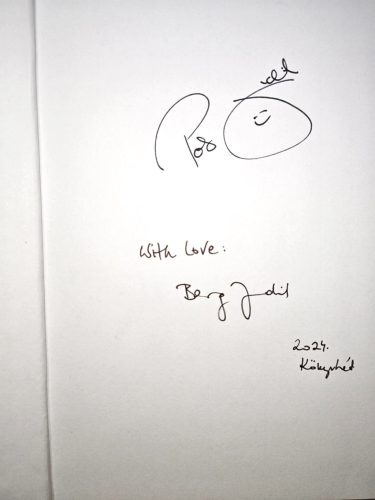 With love:
Berg Judit
2024.
Könyvhét